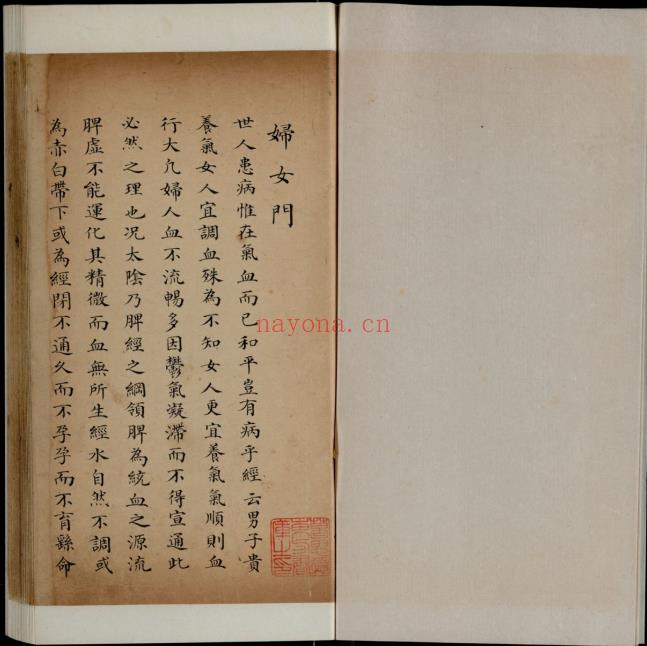 婦女門
世人患病惟在氣血而已和平豈有病乎經云男子貴
養氣女人宜調血殊為不知女人更宜養氣氣順則血
行大凡婦人血不流暢多因鬱氣凝滯而不得宣通此
必然之理也况太陰乃脾經之綱領脾為統血之源流
脾虛不能運化其精微而血無所生經水自然不調或
為赤白帶下或為經閉不通久而不孕孕而不育繇命
nayona.cn